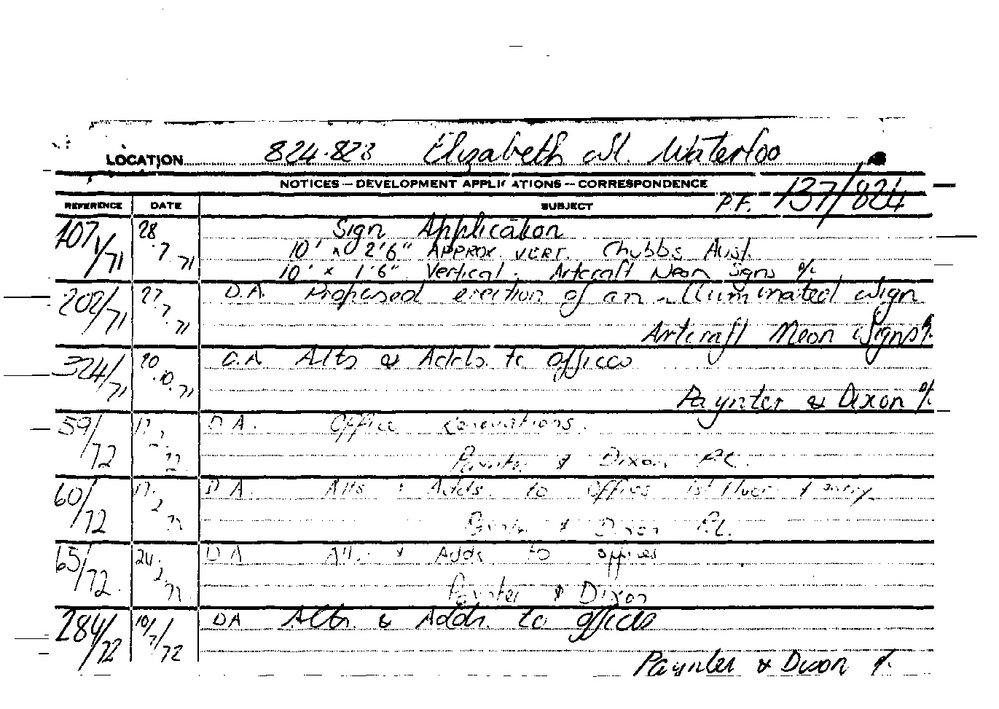 LOCATION 824-828 Elizabeth St. Waterloo
NOTICES — DEVELOPMENT APPLICATIONS — CORRESPONDENCE
REFERENCE DATE SUBJECT P.F. 137/824
107/71 28.7.71 Sign Application
10' x 2'6" APPROX VERT. Chubbs Aust.
10' x 1'6" Vertical. Artcraft Neon Signs
202/71 27.7.71 D.A. Proposed erection of an illuminated sign
Artcraft Neon Signs
324/71 20.10.71 D.A. Alts & Adds to offices
Paynter & Dixon P/L
59/72 17.2.72 D.A. Office renovations.
Paynter & Dixon P.L.
60/72 17.2.72 D.A. Alts & Adds. to offices 1st floor & entry
Paynter & Dixon P.L.
65/72 24.2.72 D.A Alts. & Adds to offices
Paynter & Dixon
284/72 10/7/72 DA Alts. & Addn. to offices
Paynter & Dixon